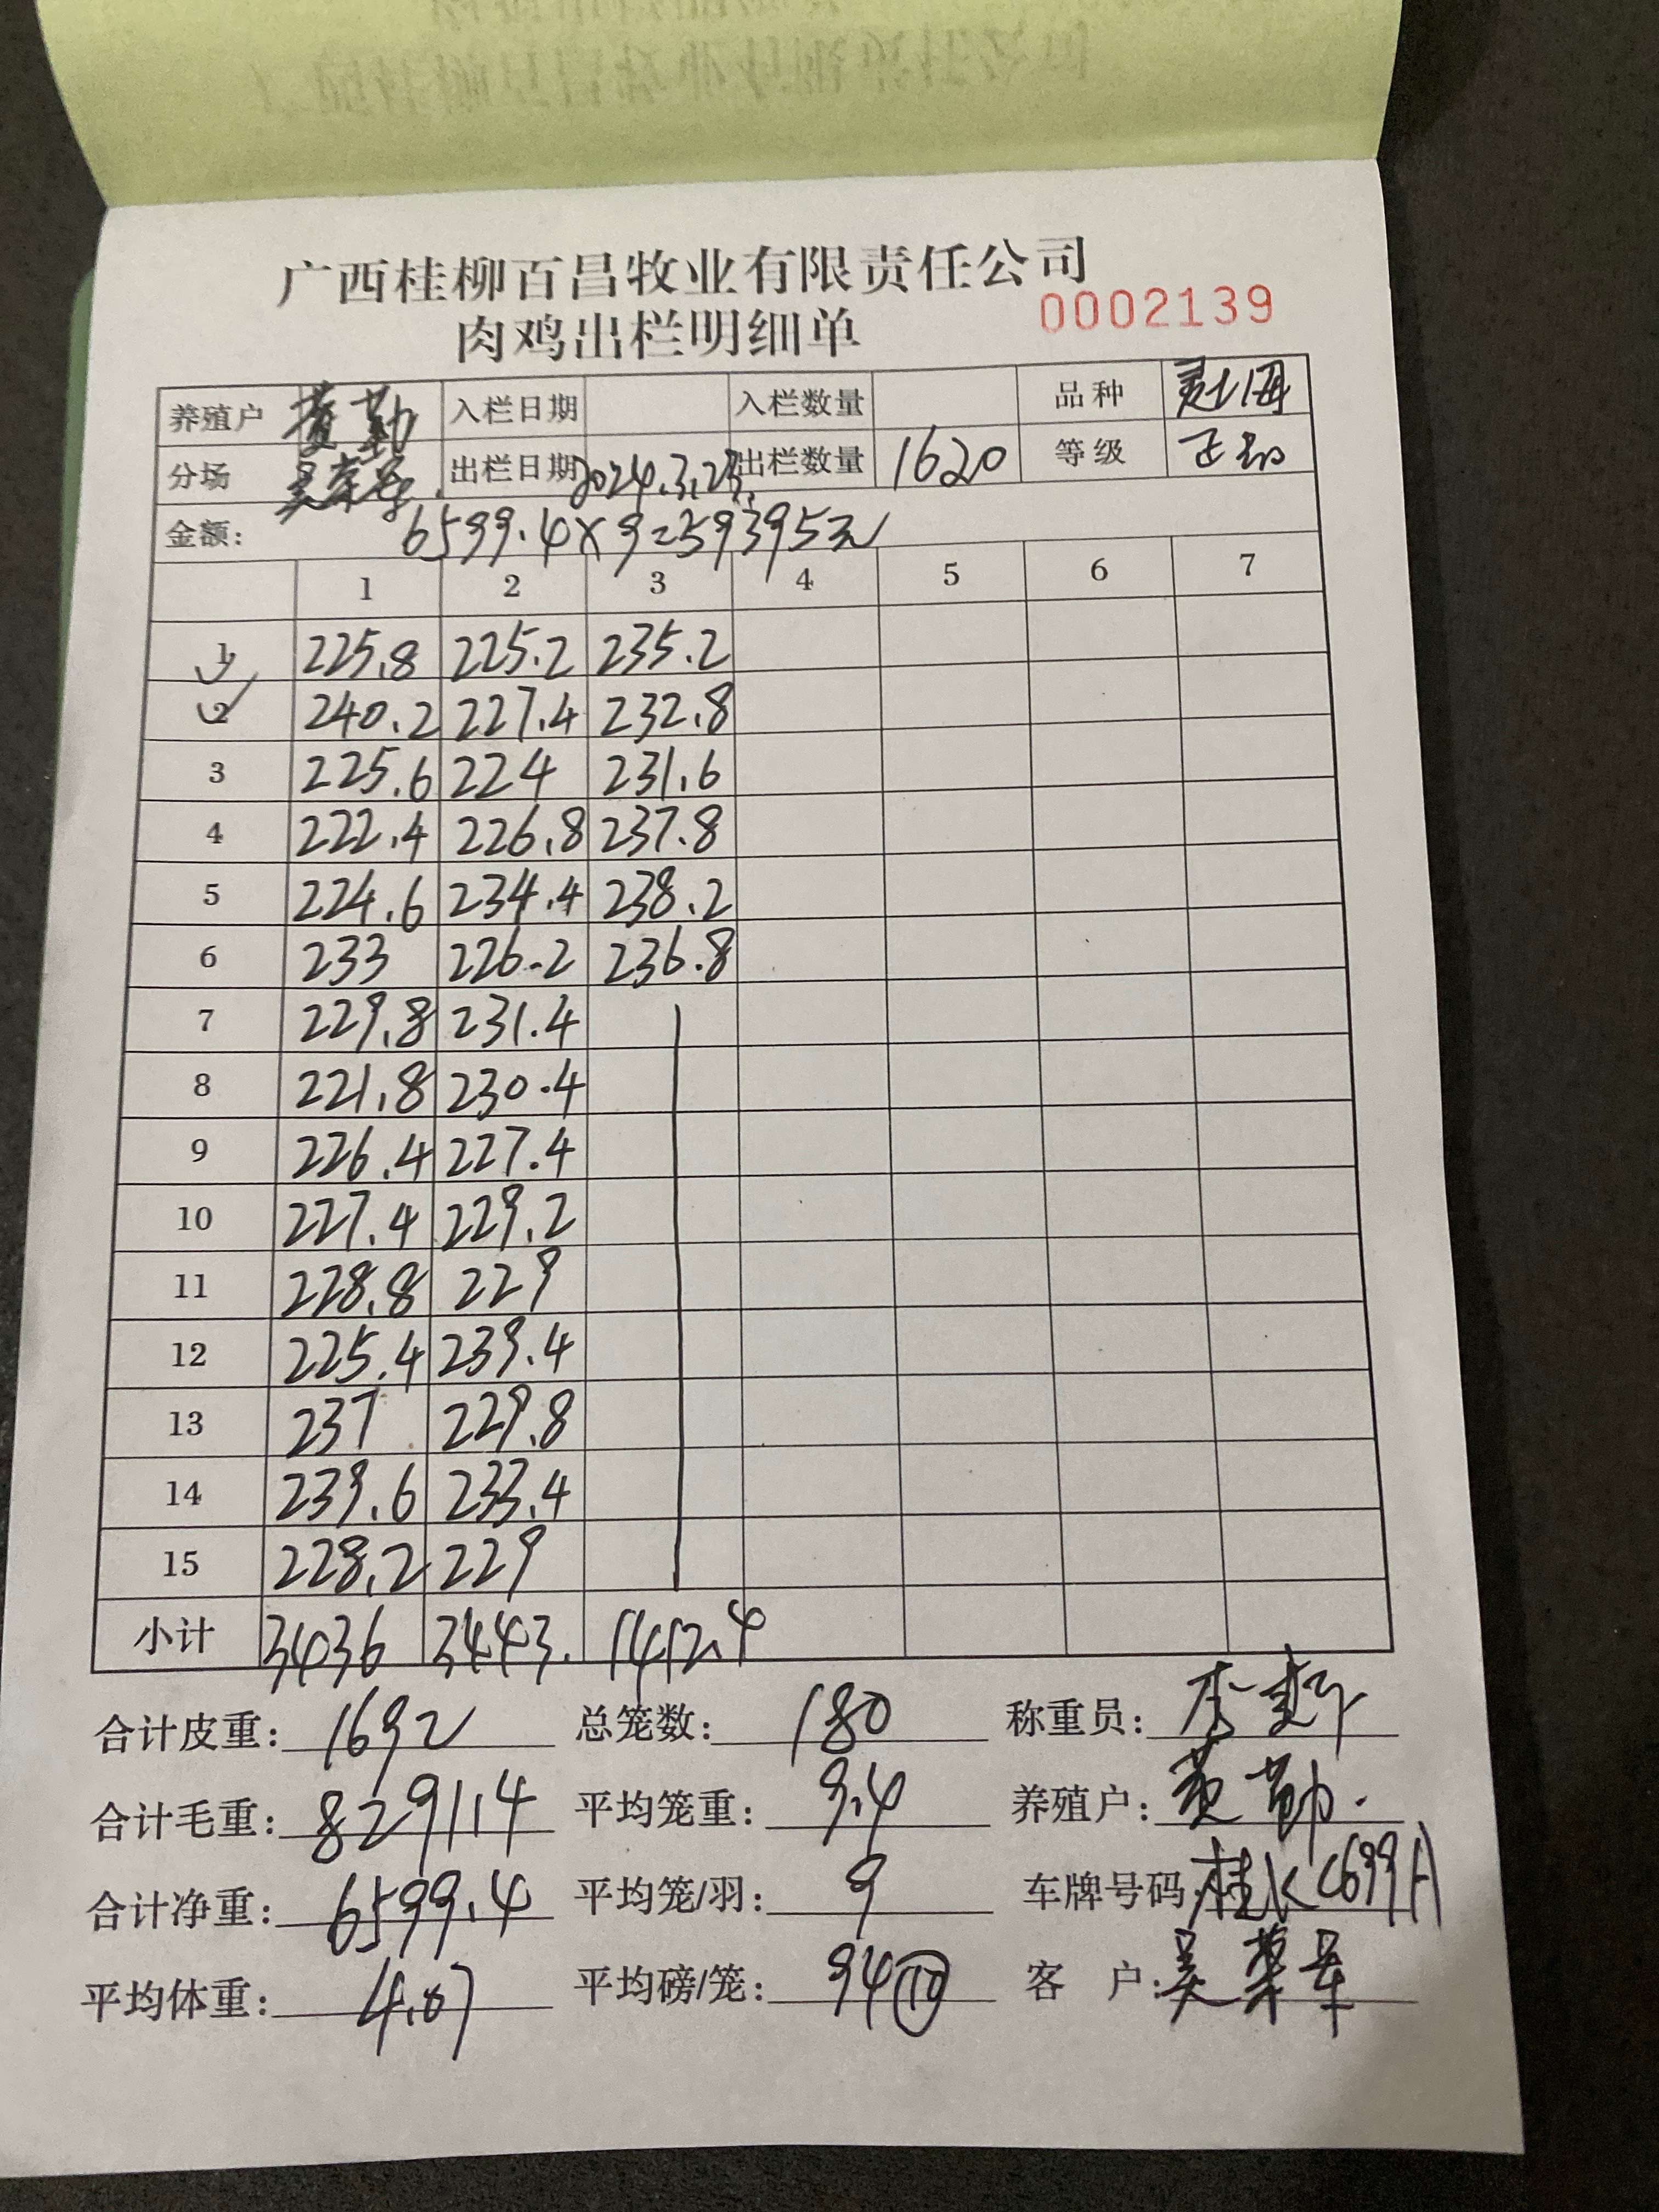 广西桂柳百昌牧业有限责任公司
肉鸡出栏明细单 0002139
养殖户 黄勤 入栏日期 入栏数量 品种
分场 出栏日期 2024.3.23. 出栏数量 1620 等级
金额: 6599.4×9=59395元
1 2 3 4 5 6 7
1 225.8 225.2 235.2
2 240.2 227.4 232.8
3 225.6 224 231.6
4 222.4 226.8 237.8
5 224.6 234.4 238.2
6 233 226.2 236.8
7 229.8 231.4
8 221.8 230.4
9 226.4 227.4
10 227.4 229.2
11 228.8 229
12 225.4 239.4
13 237 229.8
14 239.6 233.4
15 228.2 229
小计 3436 3443. 1412.4
合计皮重: 1692 总笼数: 180 称重员:
合计毛重: 8291.4 平均笼重: 9.4 养殖户: 黄勤.
合计净重: 6599.4 平均笼/羽: 9 车牌号码: 桂K C699A
平均体重: 4.07 平均磅/笼: 94⑩ 客 户: